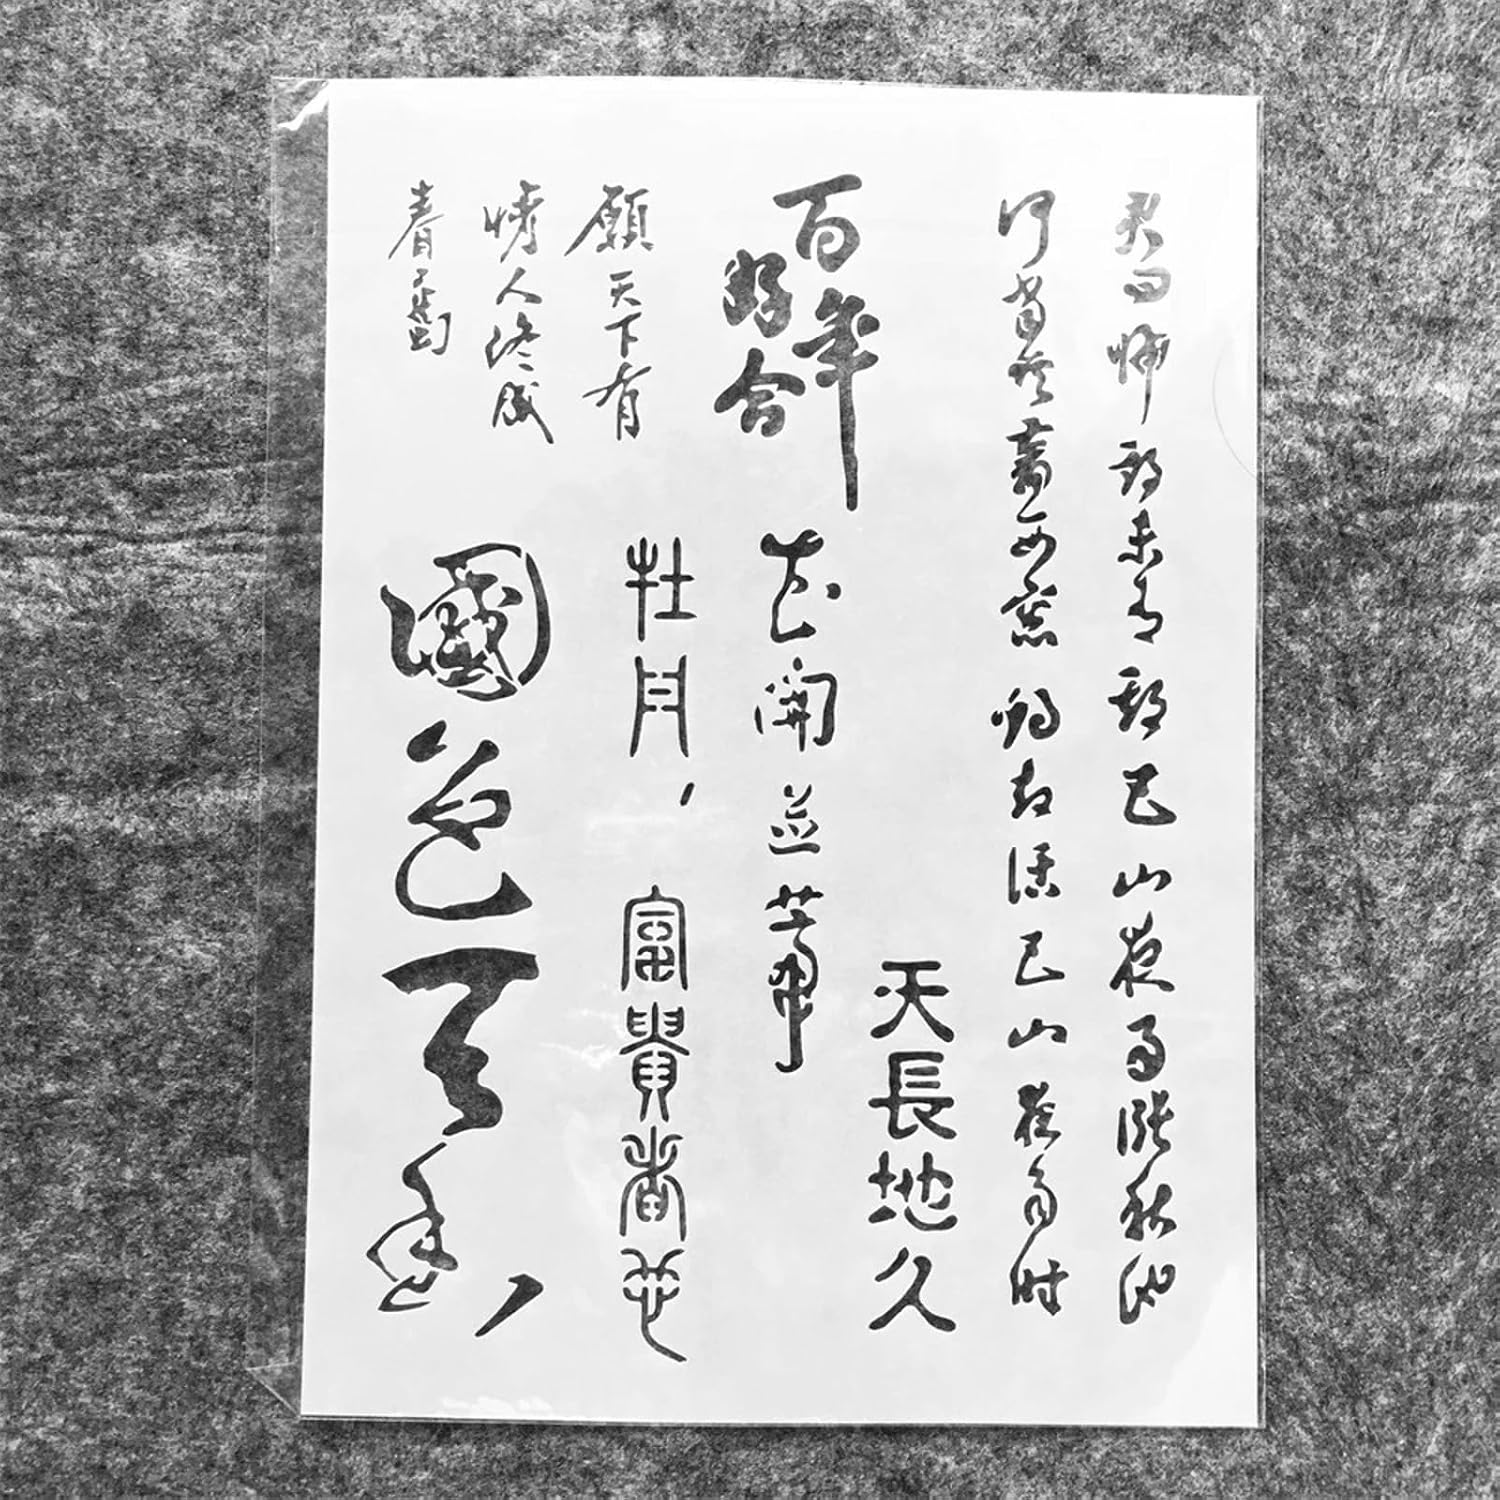 君問歸期未有期巴山夜雨漲秋池
何當共剪西窗燭却話巴山夜雨時
天長地久
百年
好合
花開並蒂
願天下有
情人終成
眷屬
牡丹，富貴者花
國色天香